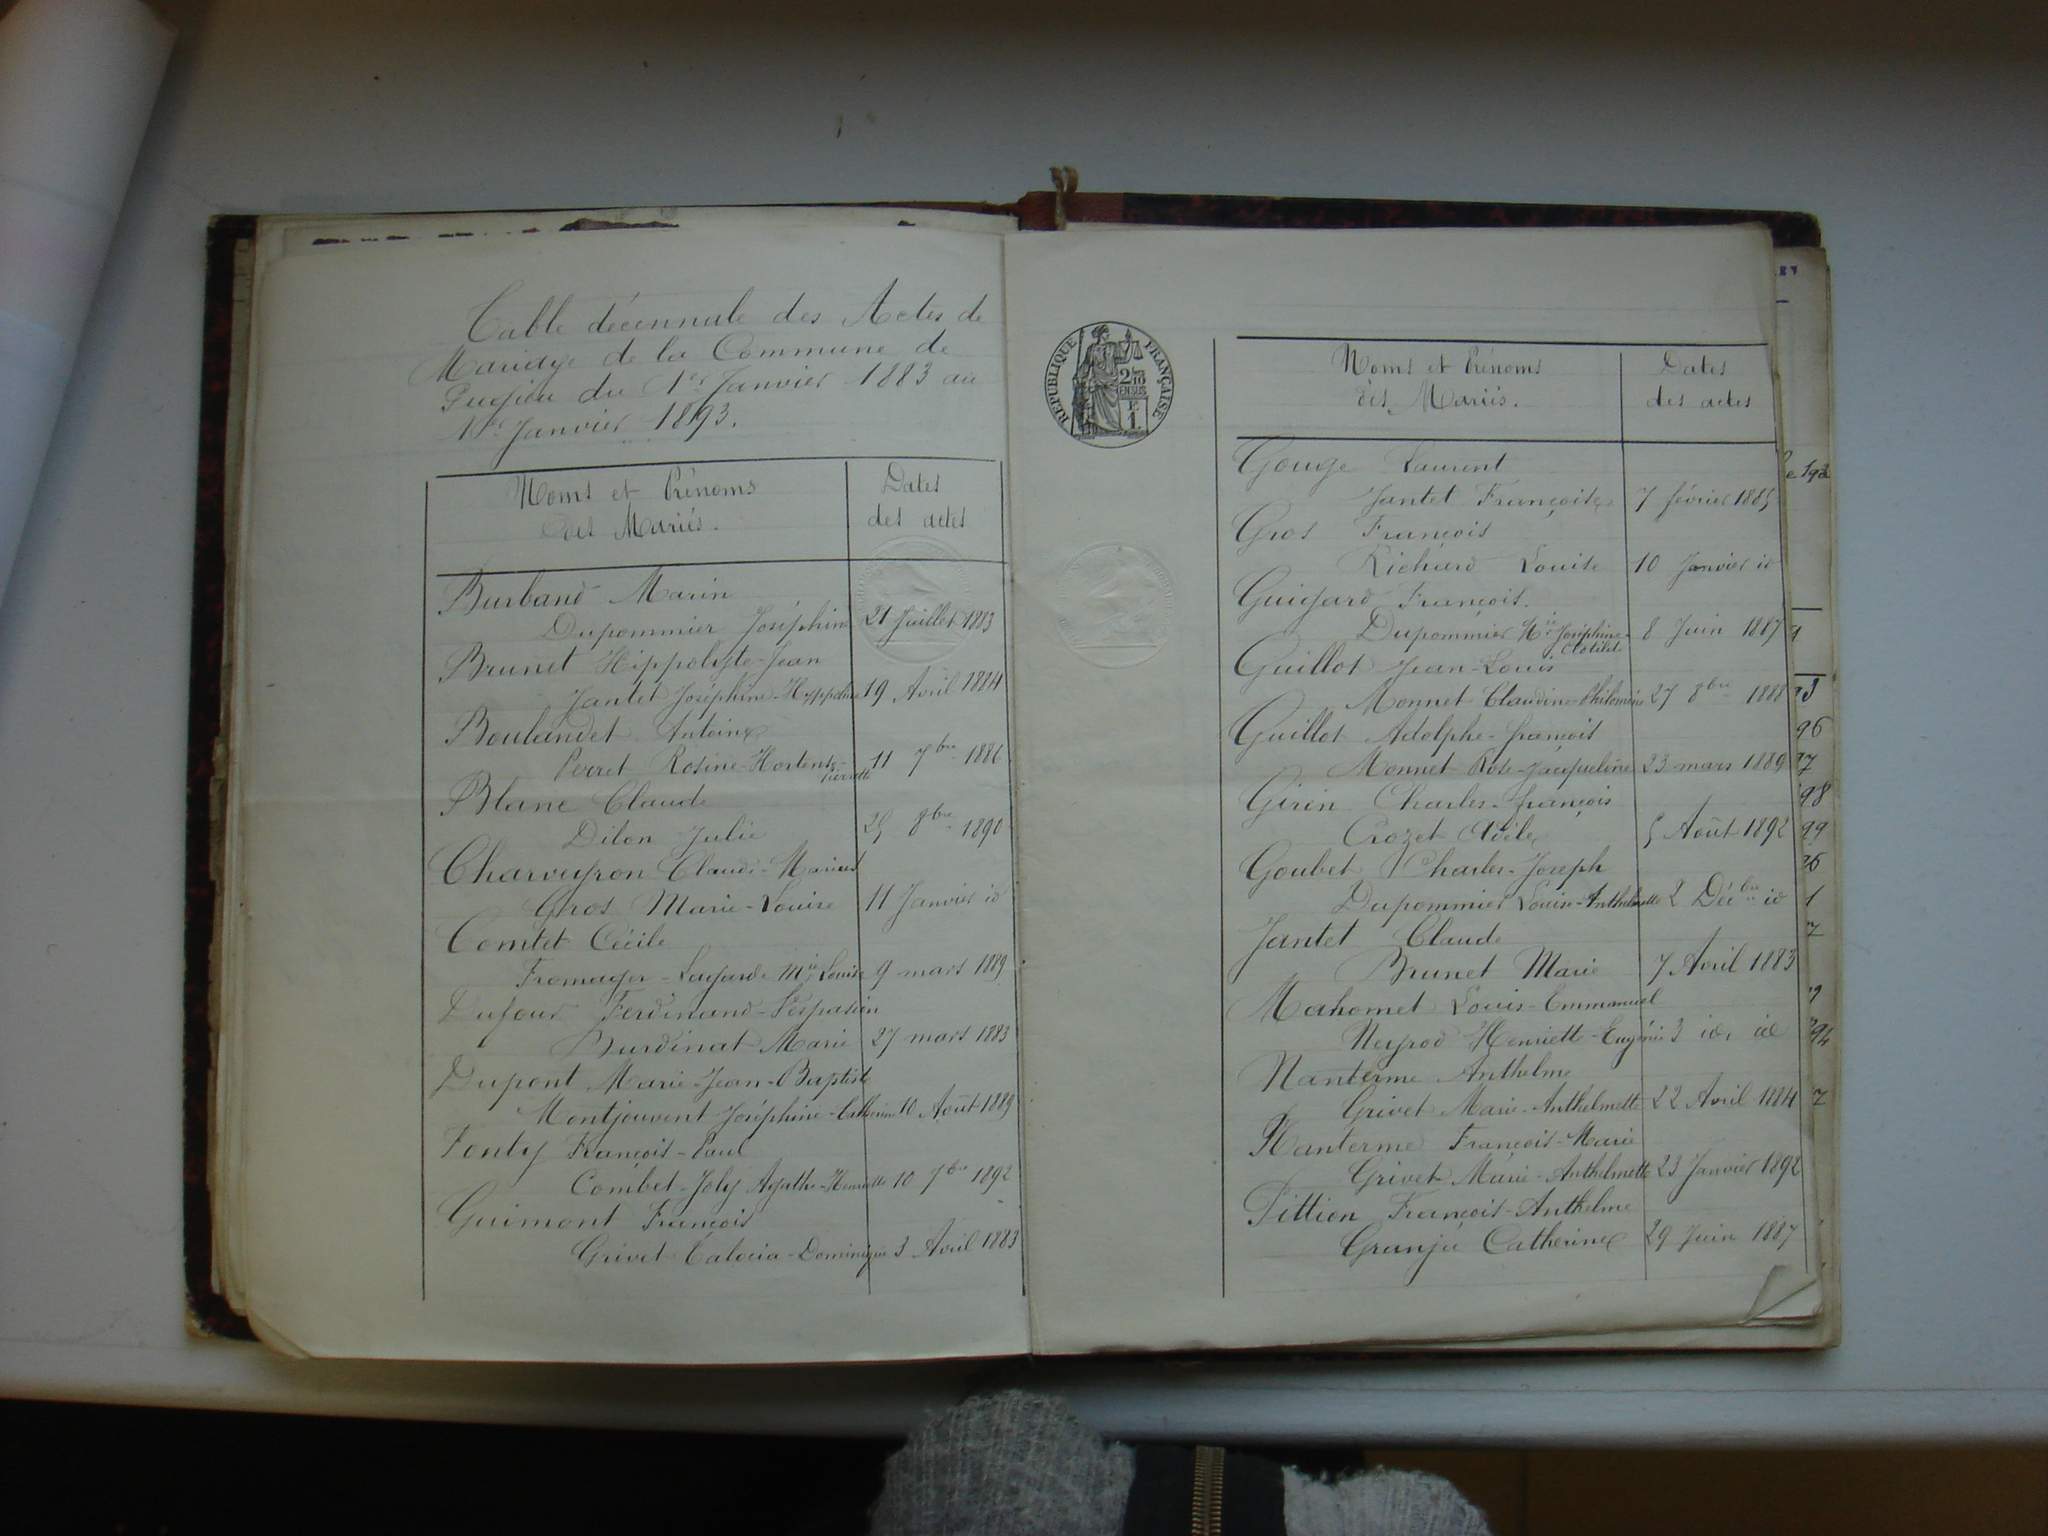 Table décennale des Actes de
Mariage de la Commune de
Pugieu du 1er Janvier 1883 au
1er Janvier 1893.
Noms et Prénoms
des Mariés.
Dates
des actes
Burband Marin
Dupommier Joséphine 21 Juillet 1883
Brunet Hippolyte-Jean
Jantet Joséphine-Hyppolite 19 Avril 1884
Boulandet Antoine
Perret Rosine-Hortense- 11 7bre 1886
Pierrette
Blanc Claude
Dilon Julie 25 8bre 1890
Charveyron Claude-Marius
Gros Marie-Louise 11 Janvier id
Comtet Cécile
Fromager-Lagarde Mie Louise 9 mars 1889
Dufour Ferdinand-Vespasien
Burdinat Marie 27 mars 1883
Dupont Marie-Jean-Baptiste
Montjouvent Joséphine-Catherine 10 Août 1889
Fonty François-Paul
Combet-Joly Agathe-Henriette 10 7bre 1892
Guimont François
Grivet Dominique 3 Avril 1883
REPUBLIQUE FRANÇAISE
2/10
EN SUS
F
1.
Noms et Prénoms
des Mariés.
Dates
des actes
Gouge Laurent
Jantet Françoise 7 février 1885
Gros François
Richard Louise 10 Janvier id
Guigard François.
Dupommier Mie Joséphine 8 Juin 1887
Clotilde
Guillot Jean-Louis
Monnet Claudine-Philomène 27 8bre 1888
Guillot Adolphe-françois
Monnet Rose-Jacqueline 23 mars 1889
Girin Charles-françois
Crozet Adèle 5 Août 1892
Goubet Charles-Joseph
Dupommier Louise-Anthelmette 2 Décbre id
Jantet Claude
Brunet Marie 7 Avril 1883
Mahomet Louis-Emmanuel
Neyrod Henriette-Eugénie 3 id. id
Nanterme Anthelme
Grivet Marie-Anthelmette 22 Avril 1884
Nanterme François-Marie
Grivet Marie-Anthelmette 23 Janvier 1892
Pittion François-Anthelme
Granju Catherine 29 Juin 1887